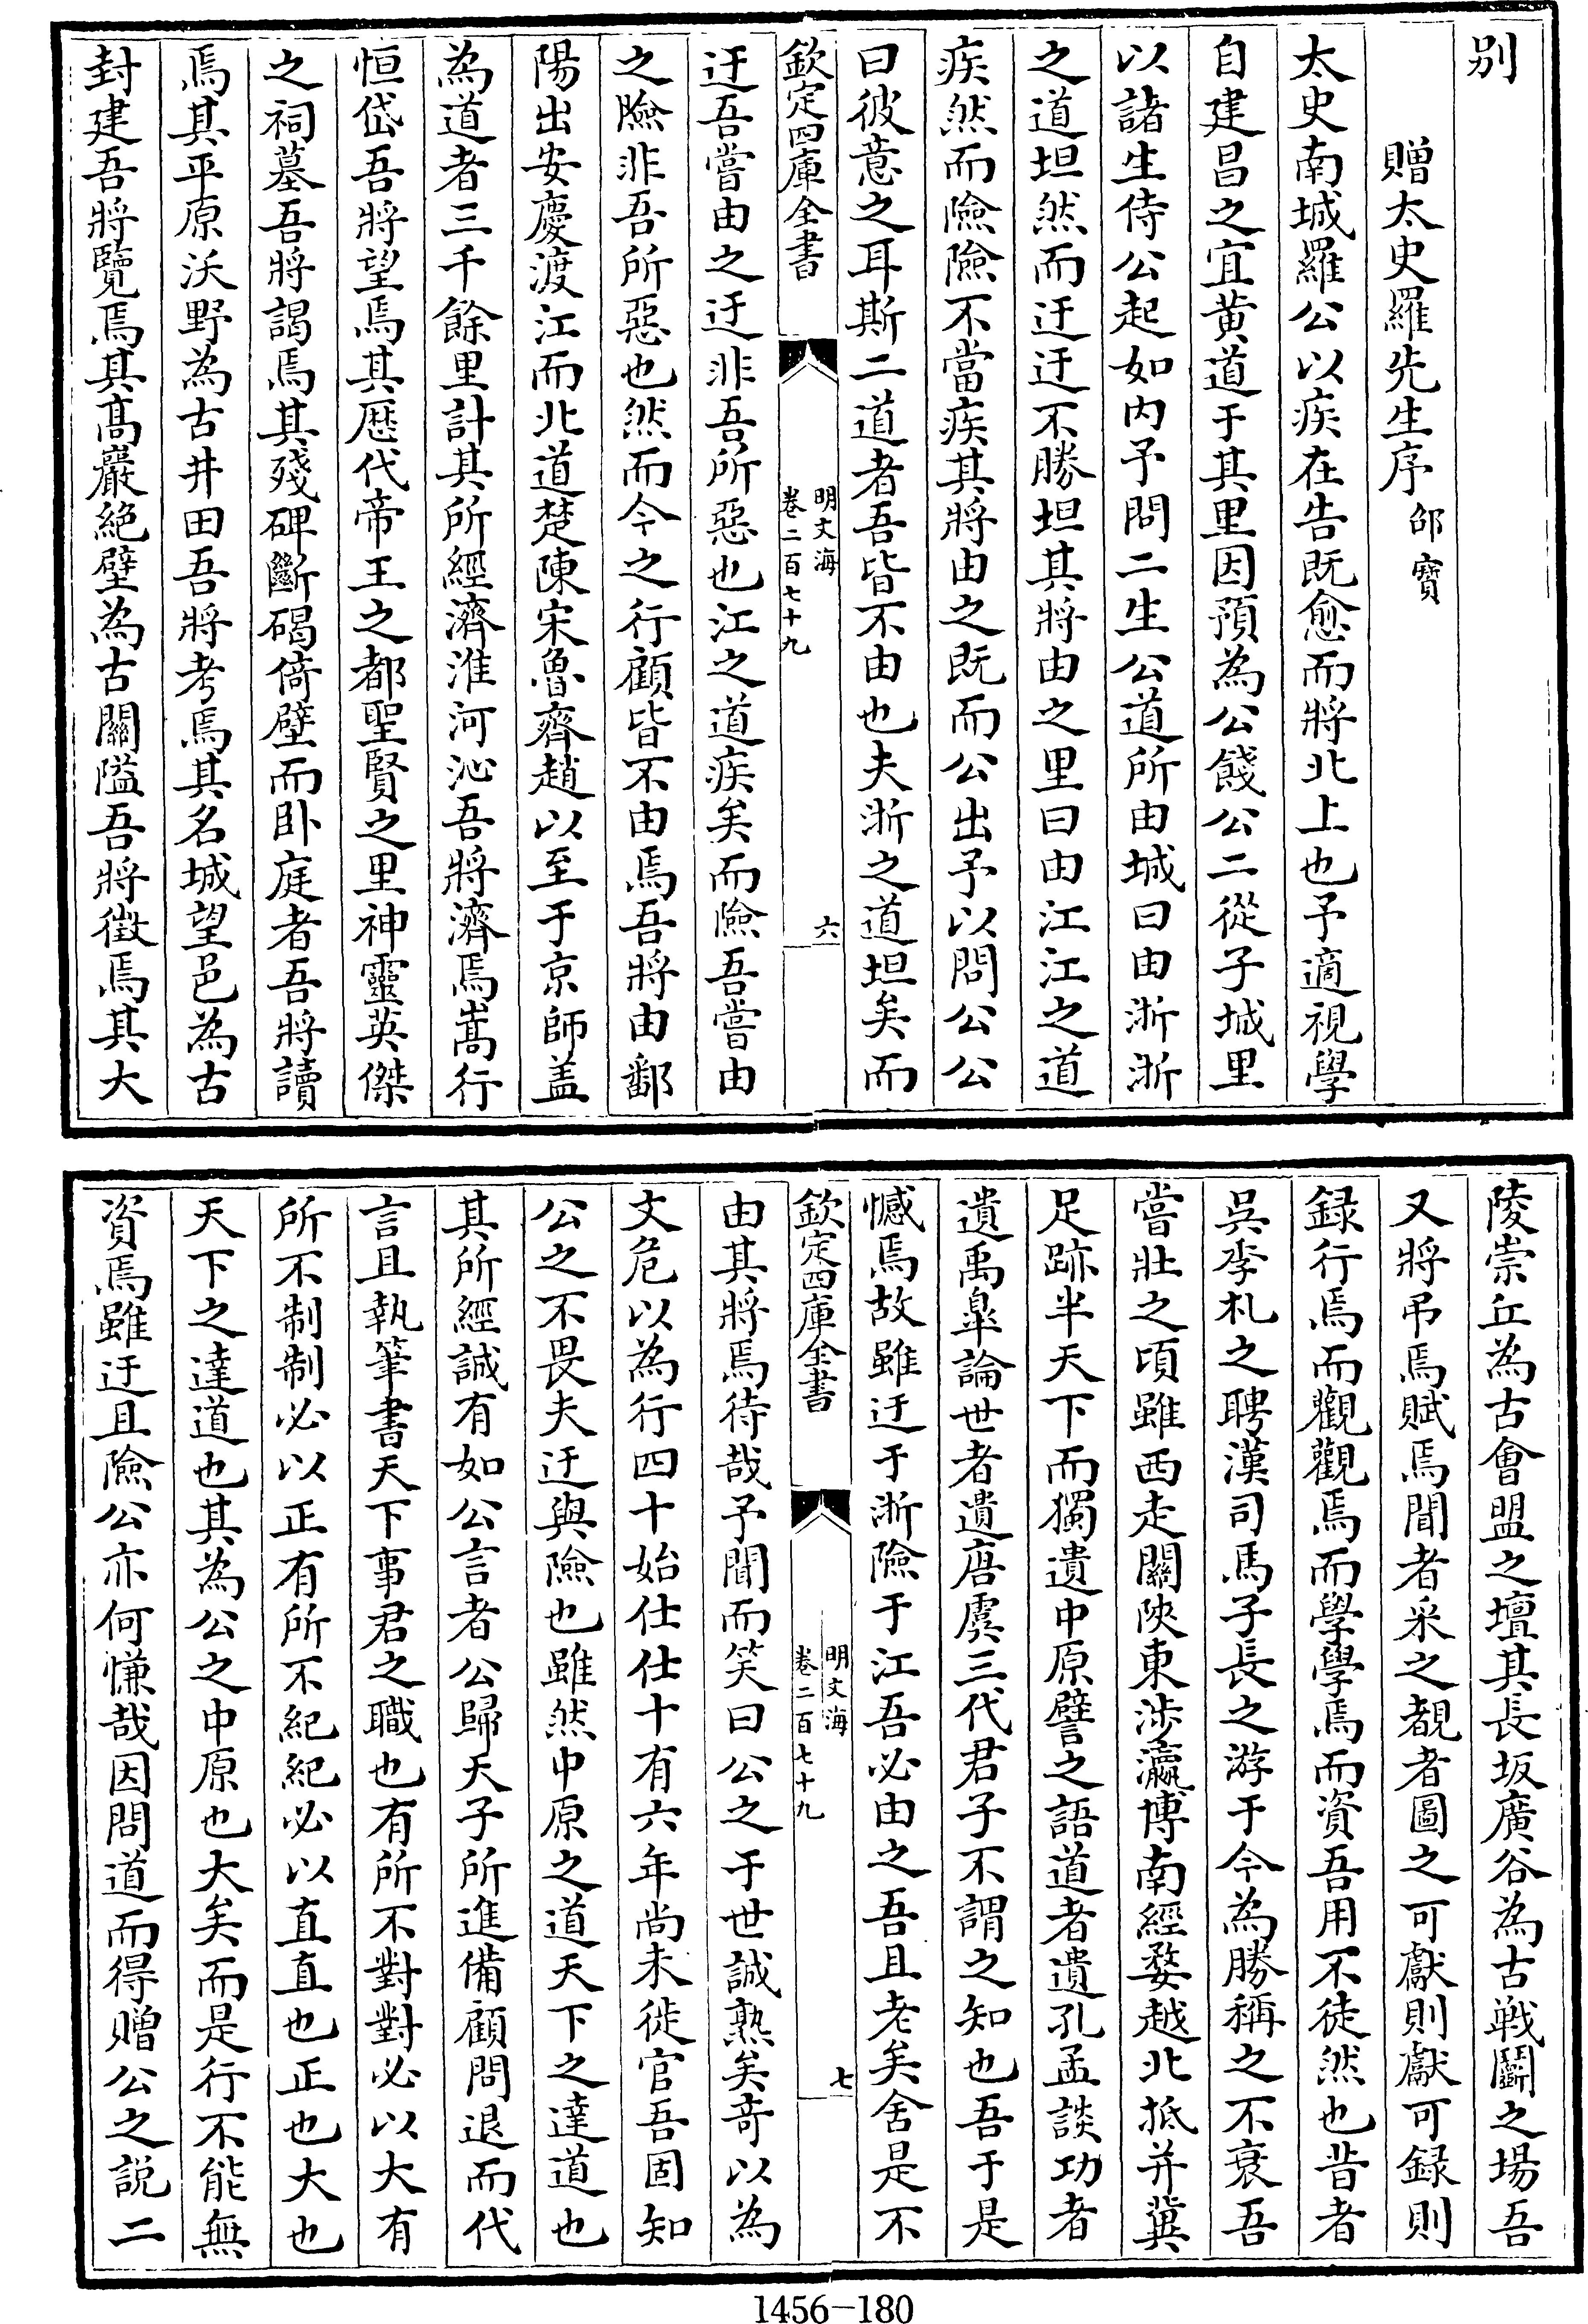 别
贈太史羅先生序 邵寳
太史南城羅公以疾在告既愈而將北上也予適視學
自建昌之宜黄道于其里因預為公餞公二從子城里
以諸生侍公起如内予問二生公道所由城曰由浙浙
之道坦然而迂迂不勝坦其將由之里曰由江江之道
疾然而險險不當疾其將由之既而公出予以問公公
曰彼意之耳斯二道者吾皆不由也夫浙之道坦矣而
欽定四庫全書
明文海
卷二百七十九
六
迂吾嘗由之迂非吾所惡也江之道疾矣而險吾嘗由
之險非吾所惡也然而今之行顧皆不由焉吾將由鄱
陽出安慶渡江而北道楚陳宋魯齊趙以至于京師盖
為道者三千餘里計其所經濟淮河沁吾將濟焉嵩行
恒岱吾將望焉其歴代帝王之都聖賢之里神靈英傑
之祠墓吾將謁焉其殘碑斷碣倚壁而卧庭者吾將讀
焉其平原沃野為古井田吾將考焉其名城望邑為古
封建吾將覽焉其髙巖絶壁為古關隘吾將徵焉其大
陵崇丘為古會盟之壇其長坂廣谷為古戰鬬之場吾
又將弔焉賦焉聞者采之覩者圖之可獻則獻可録則
録行焉而觀觀焉而學學焉而資吾用不徒然也昔者
吳季札之聘漢司馬子長之游于今為勝稱之不衰吾
嘗壯之頃雖西走關陜東涉瀛博南經婺越北抵并冀
足跡半天下而獨遺中原譬之語道者遺孔孟談功者
遺禹臯論世者遺唐虞三代君子不謂之知也吾于是
憾焉故雖迂于浙險于江吾必由之吾且老矣舍是不
欽定四庫全書
明文海
卷二百七十九
七
由其將焉待哉予聞而笑曰公之于世誠熟矣竒以為
文危以為行四十始仕仕十有六年尚未徙官吾固知
公之不畏夫迂與險也雖然中原之道天下之達道也
其所經誠有如公言者公歸天子所進備顧問退而代
言且執筆書天下事君之職也有所不對對必以大有
所不制制必以正有所不紀紀必以直直也正也大也
天下之達道也其為公之中原也大矣而是行不能無
資焉雖迂且險公亦何慊哉因問道而得贈公之説二
1456-180